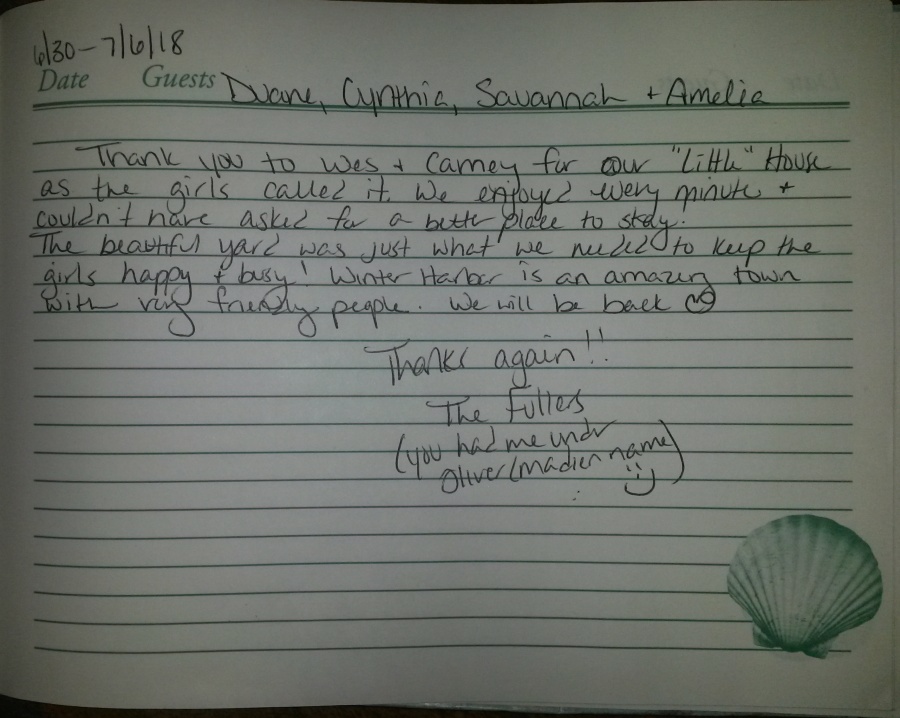 6/30-7/6/18
Date Guests Duane, Cynthia, Savannah + Amelia
Thank you to Wes + Carney for our "Little" House
as the girls called it. We enjoyed every minute +
couldn't have asked for a better place to stay.
The beautiful yard was just what we needed to keep the
girls happy + busy! Winter Harbor is an amazing town
with very friendly people. We will be back
Thanks again!!
The Fullers
(you had me undr
Oliver (madien name)